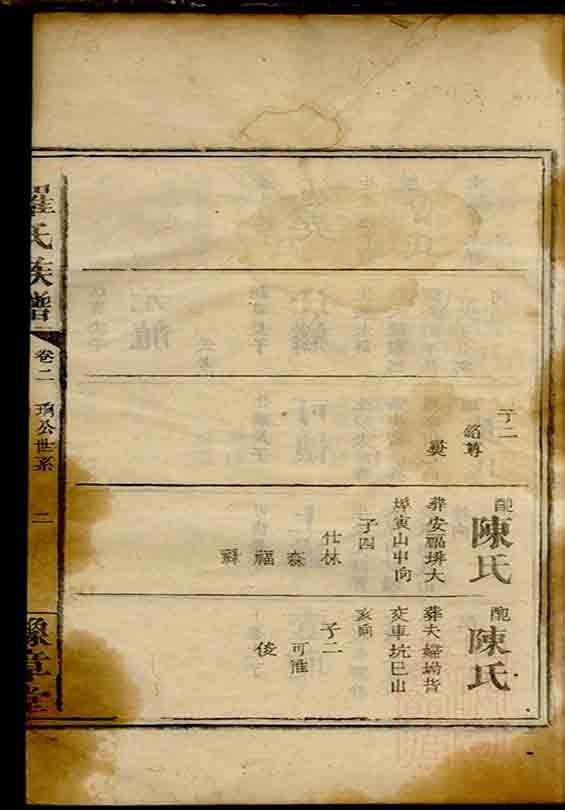 子二
紹尊
爨
配
陳氏
葬安福排大
埠寅山申向
子四
仕林
森
福
配
陳氏
葬夫婦坳背
交車坑巳山
亥向
子二
可惟
俊
羅氏族譜
卷二
公世系
二
豫章堂